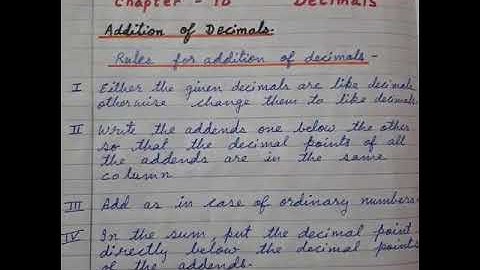 Chapter - 10 Decimals
Addition of Decimals.
Rules for addition of decimals -
I Either the given decimals are like decimals
otherwise change them to like decimals.
II Write the addends one below the other
so that the decimal points of all
the addends are in the same
column
III Add as in case of ordinary numbers.
IV In the sum, put the decimal point
directly below the decimal points
of the addends.